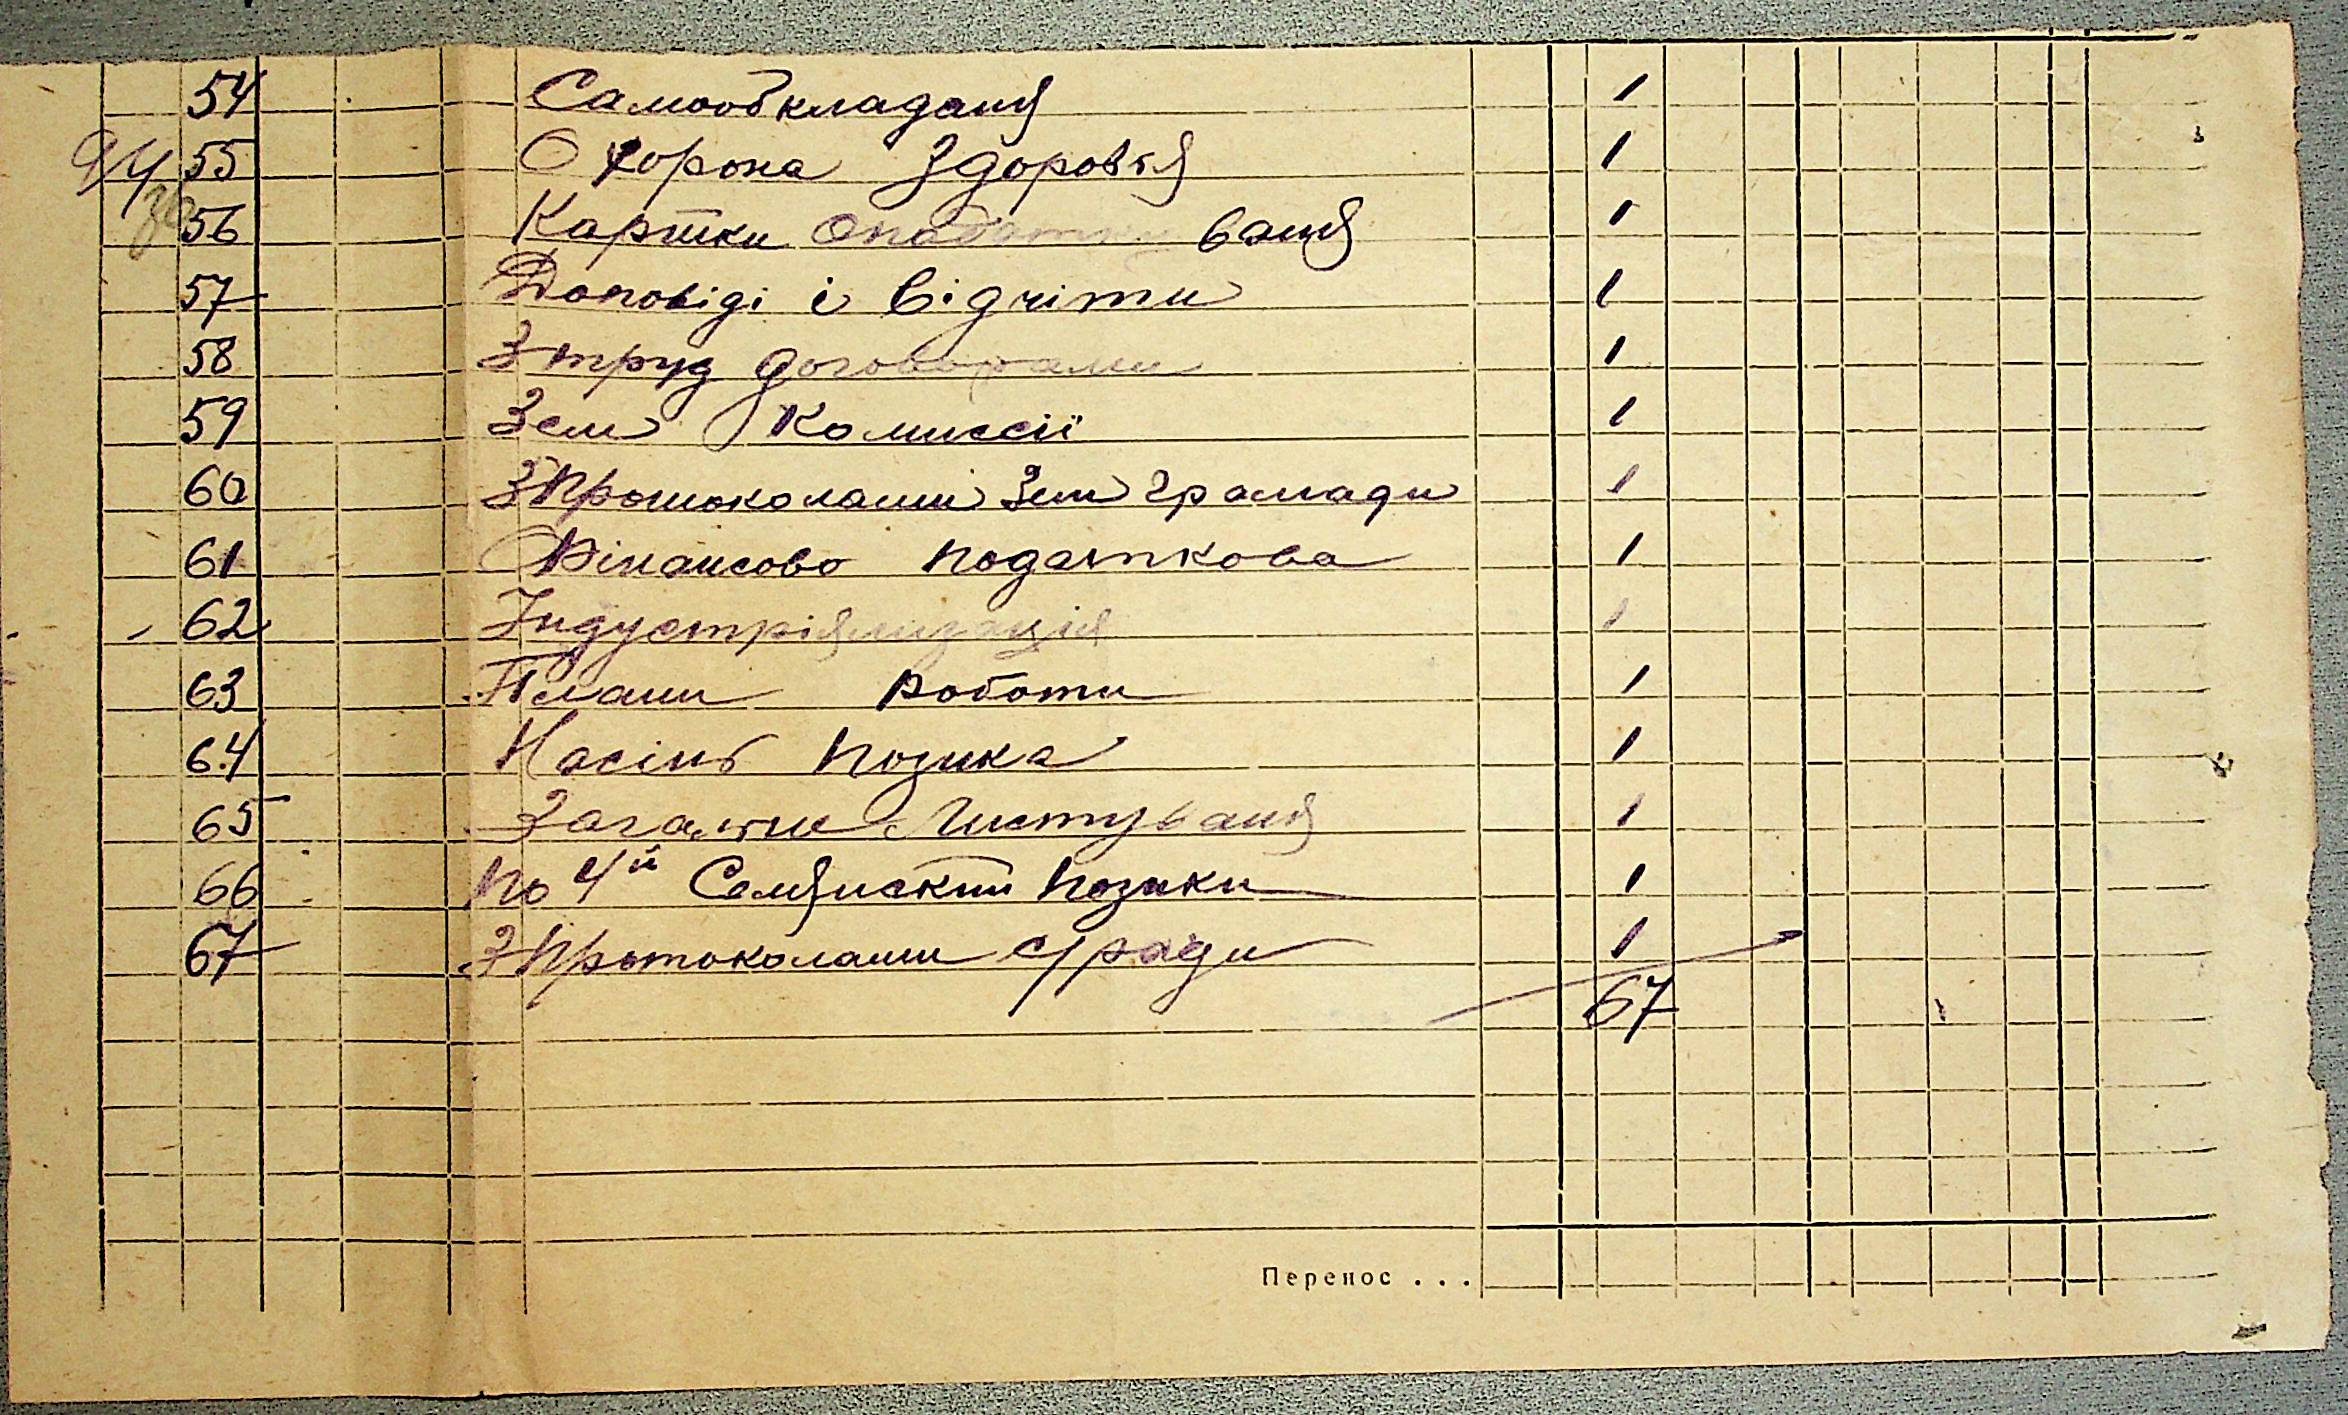 54 Самообкладаня 1
55 Охорона Здоровья 1
56 Картки Опадатку ваня 1
57 Доповіді і відчіти 1
58 З труд договорами 1
59 Зем Комиссії 1
60 З Протоколами Зем Громади 1
61 Фінансово податкова 1
62 Індустріялизація 1
63 Плани роботи 1
64 Насінь позика 1
65 Загальне Листуваня 1
66 по 4й Селянскій позики 1
67 З Протоколами с/ради 1
67
Перенос . . .